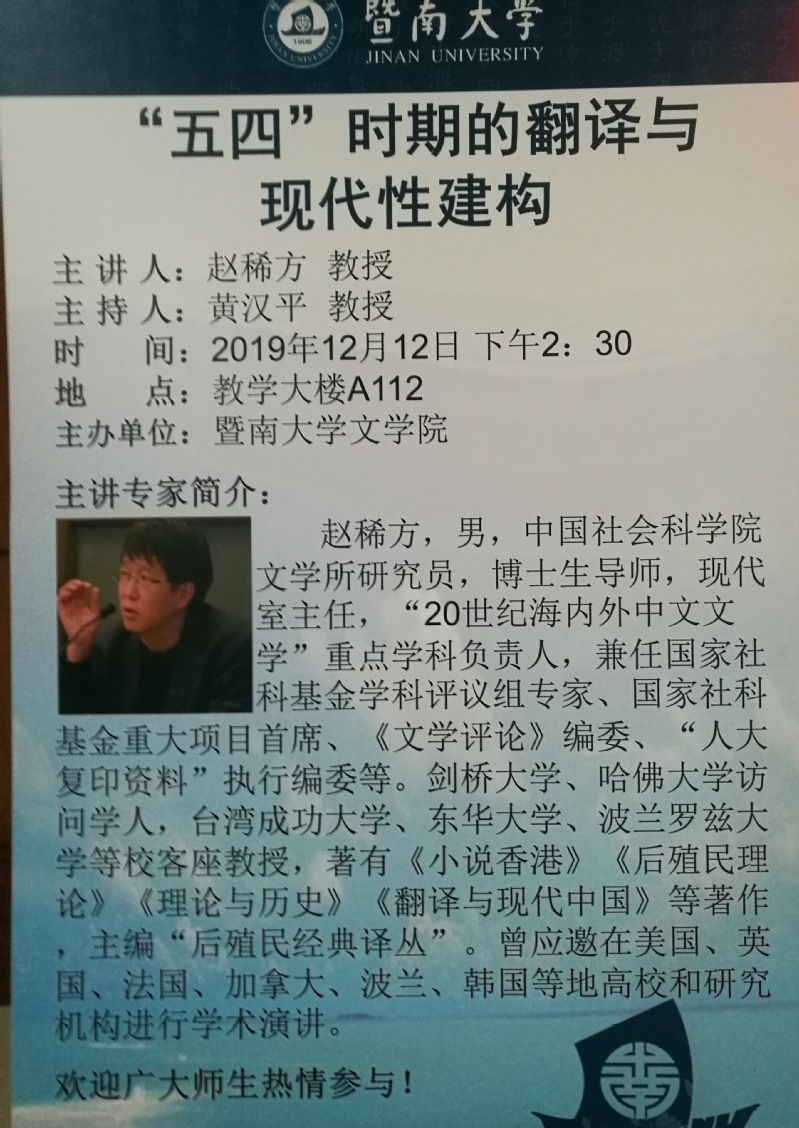 暨南大学
JINAN UNIVERSITY
1906
“五四”时期的翻译与
现代性建构
主讲人：赵稀方 教授
主持人：黄汉平 教授
时 间：2019年12月12日 下午2：30
地 点：教学大楼A112
主办单位：暨南大学文学院
主讲专家简介：
赵稀方，男，中国社会科学院
文学所研究员，博士生导师，现代
室主任，“20世纪海内外中文文
学”重点学科负责人，兼任国家社
科基金学科评议组专家、国家社科
基金重大项目首席、《文学评论》编委、“人大
复印资料”执行编委等。剑桥大学、哈佛大学访
问学人，台湾成功大学、东华大学、波兰罗兹大
学等校客座教授，著有《小说香港》《后殖民理
论》《理论与历史》《翻译与现代中国》等著作
，主编“后殖民经典译丛”。曾应邀在美国、英
国、法国、加拿大、波兰、韩国等地高校和研究
机构进行学术演讲。
欢迎广大师生热情参与！